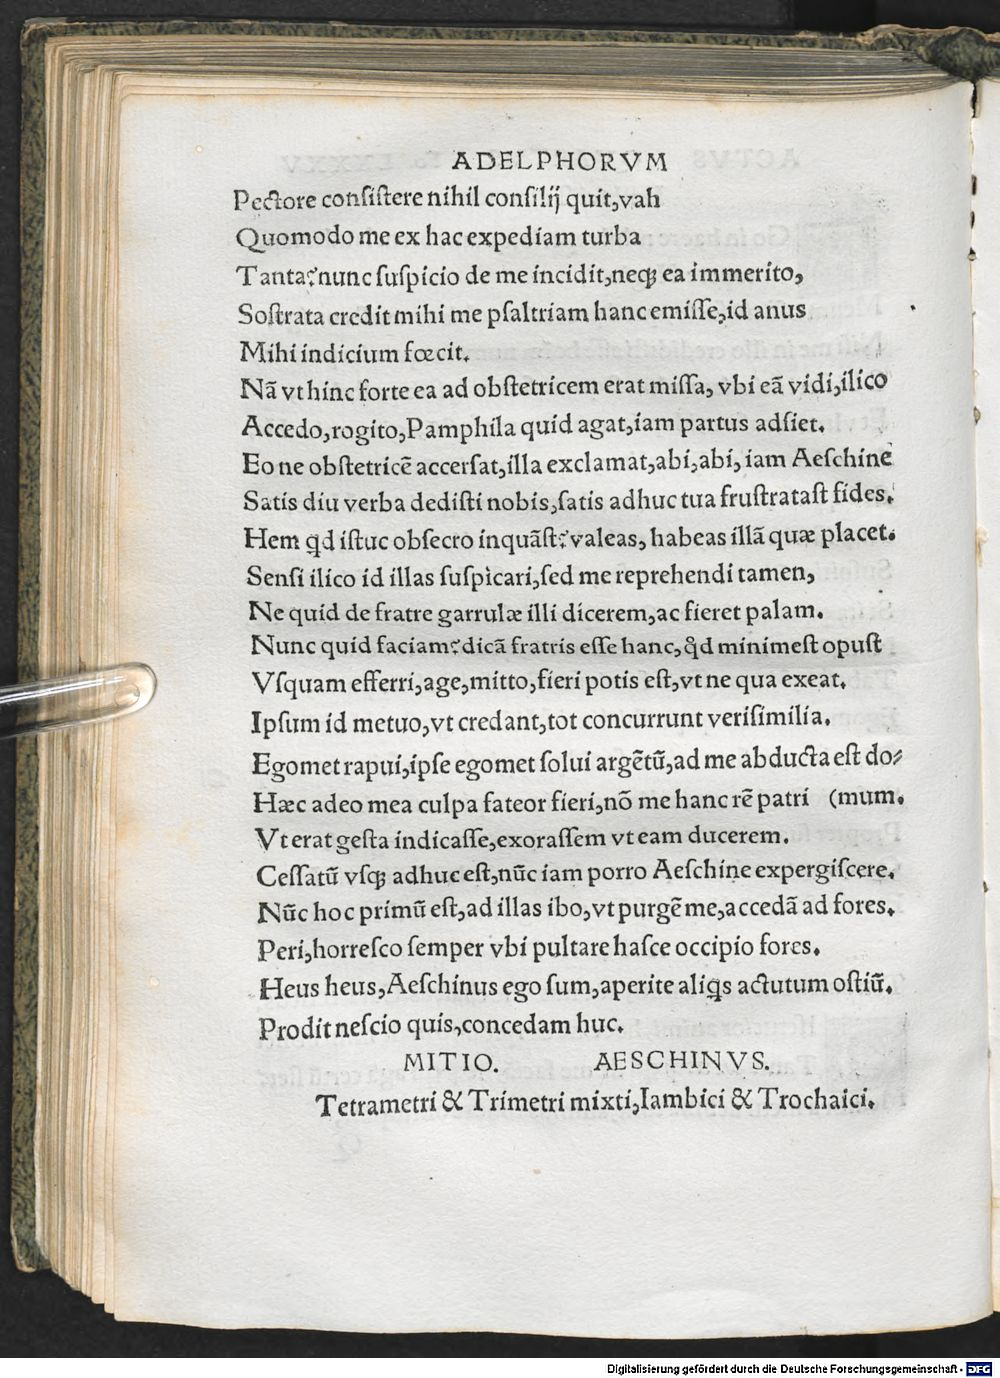 ADELPHORVM
Pectore consistere nihil consilij quit,vah
Quomodo me ex hac expediam turba
Tanta?nunc suspicio de me incidit,neqꝫ ea immerito,
Sostrata credit mihi me psaltriam hanc emisse,id anus
Mihi indicium fœcit.
Nã vt hinc forte ea ad obstetricem erat missa, vbi eã vidi,ilico
Accedo,rogito,Pamphila quid agat,iam partus adsiet.
Eo ne obstetricẽ accersat,illa exclamat,abi,abi, iam Aeschine
Satis diu verba dedisti nobis,satis adhuc tua frustratast fides.
Hem qd istuc obsecro inquãst?valeas, habeas illã quæ placet.
Sensi ilico id illas suspicari,sed me reprehendi tamen,
Ne quid de fratre garrulæ illi dicerem,ac fieret palam.
Nunc quid faciam?dicã fratris esse hanc,qd minimest opust
Vsquam efferri,age,mitto,fieri potis est,vt ne qua exeat.
Ipsum id metuo,vt credant,tot concurrunt verisimilia.
Egomet rapui,ipse egomet solui argẽtũ,ad me abducta est do⸗
Hæc adeo mea culpa fateor fieri,nõ me hanc rẽ patri (mum.
Vt erat gesta indicasse,exorassem vt eam ducerem.
Cessatũ vsqꝫ adhuc est,nũc iam porro Aeschine expergiscere.
Nũc hoc primũ est,ad illas ibo,vt purgẽ me,accedã ad fores.
Peri,horresco semper vbi pultare hasce occipio fores.
Heus heus,Aeschinus ego sum,aperite aliqs actutum ostiũ.
Prodit nescio quis,concedam huc.
MITIO. AESCHINVS.
Tetrametri & Trimetri mixti,Iambici & Trochaici.
Digitalisierung gefördert durch die Deutsche Forschungsgemeinschaft - DFG